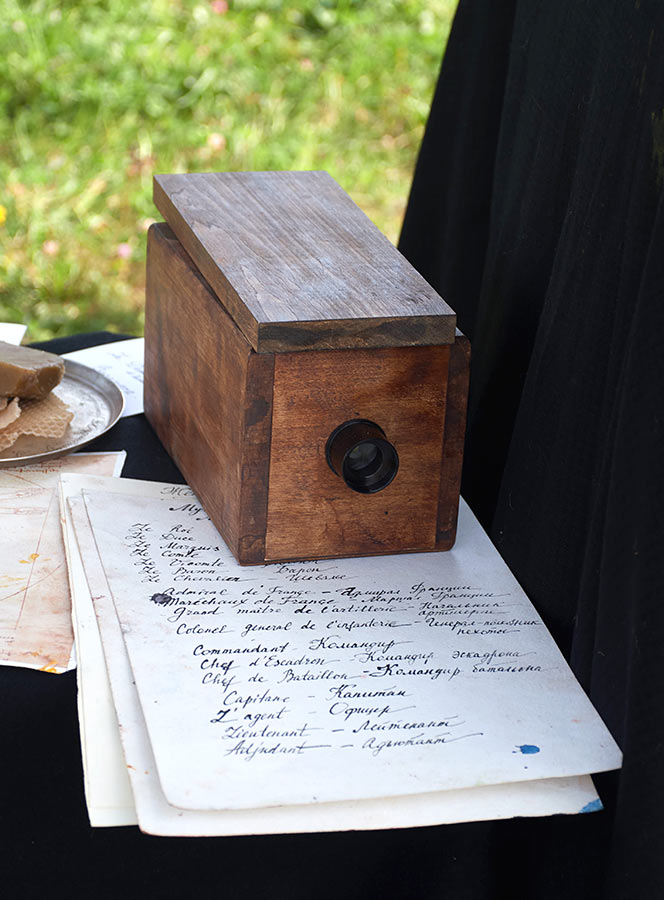 Le Roi
Le Duce
Le Marquis
Le Comte
Le Vicomte
Le Baron – Барон
Le Chevalier – Шевалье
Admiral de France – Адмирал Франции
Maréchaux de France – Маршал Франции
Grand maître de l'artillerie – Начальник
артиллерии
Colonel général de l'infanterie – Генерал-полковник
пехоты
Commandant Командир
Chef d'Escadron – Командир эскадрона
Chef de Bataillon – Командир батальона
Capitane – Капитан
L'agent – Офицер
Lieutenant – Лейтенант
Adjudant – Адъютант